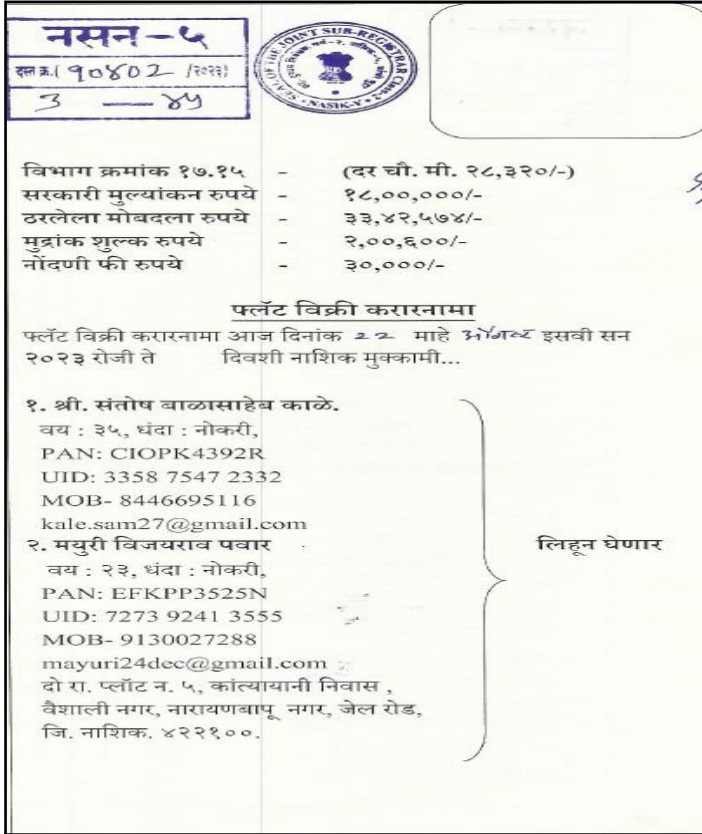 नसन - ५
दस्त क्र. ( १०४०२ /२०२३)
३ — ४५
SEAL OF THE JOINT SUB-REGISTRAR Class-2
NASIK-V
विभाग क्रमांक १७.१५ - (दर चौ. मी. २८,३२०/-)
सरकारी मुल्यांकन रुपये - १८,००,०००/-
ठरलेला मोबदला रुपये - ३३,४२,५७४/-
मुद्रांक शुल्क रुपये - २,००,६००/-
नोंदणी फी रुपये - ३०,०००/-
फ्लॅट विक्री करारनामा
फ्लॅट विक्री करारनामा आज दिनांक २२ माहे ऑगस्ट इसवी सन
२०२३ रोजी ते दिवशी नाशिक मुक्कामी...
१. श्री. संतोष बाळासाहेब काळे.
वय : ३५, धंदा : नोकरी,
PAN: CIOPK4392R
UID: 3358 7547 2332
MOB- 8446695116
kale.sam27@gmail.com
२. मयुरी विजयराव पवार
वय : २३, धंदा : नोकरी,
PAN: EFKPP3525N
UID: 7273 9241 3555
MOB- 9130027288
mayuri24dec@gmail.com
दो रा. प्लॉट न. ५, कांत्यायानी निवास ,
वैशाली नगर, नारायणबापू नगर, जेल रोड,
जि. नाशिक. ४२२१००.
लिहून घेणार